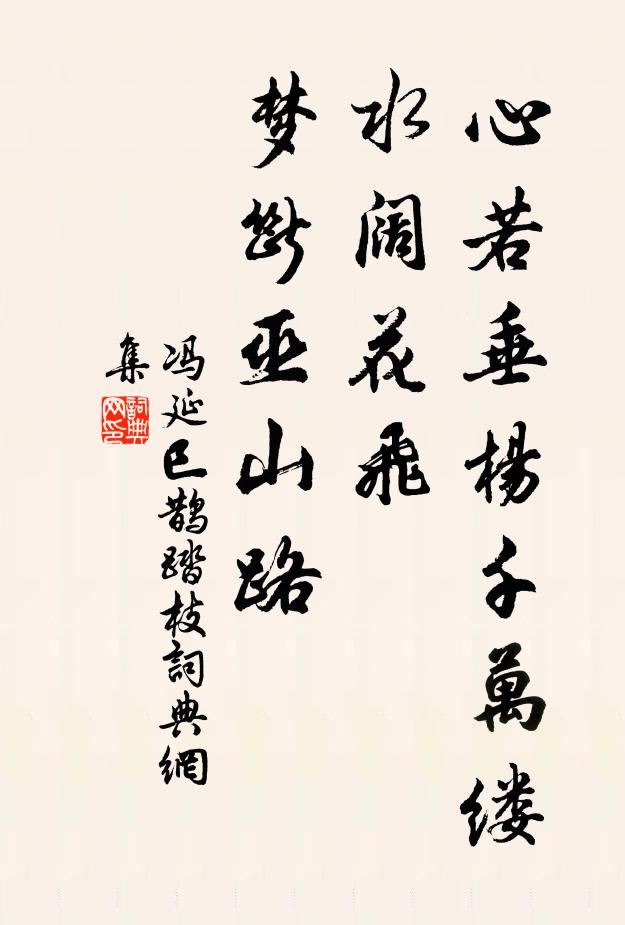 心若垂楊千萬缕
水阔花飛
梦斷巫山路
冯延巳鵲踏枝詞典網
集
詞典网印